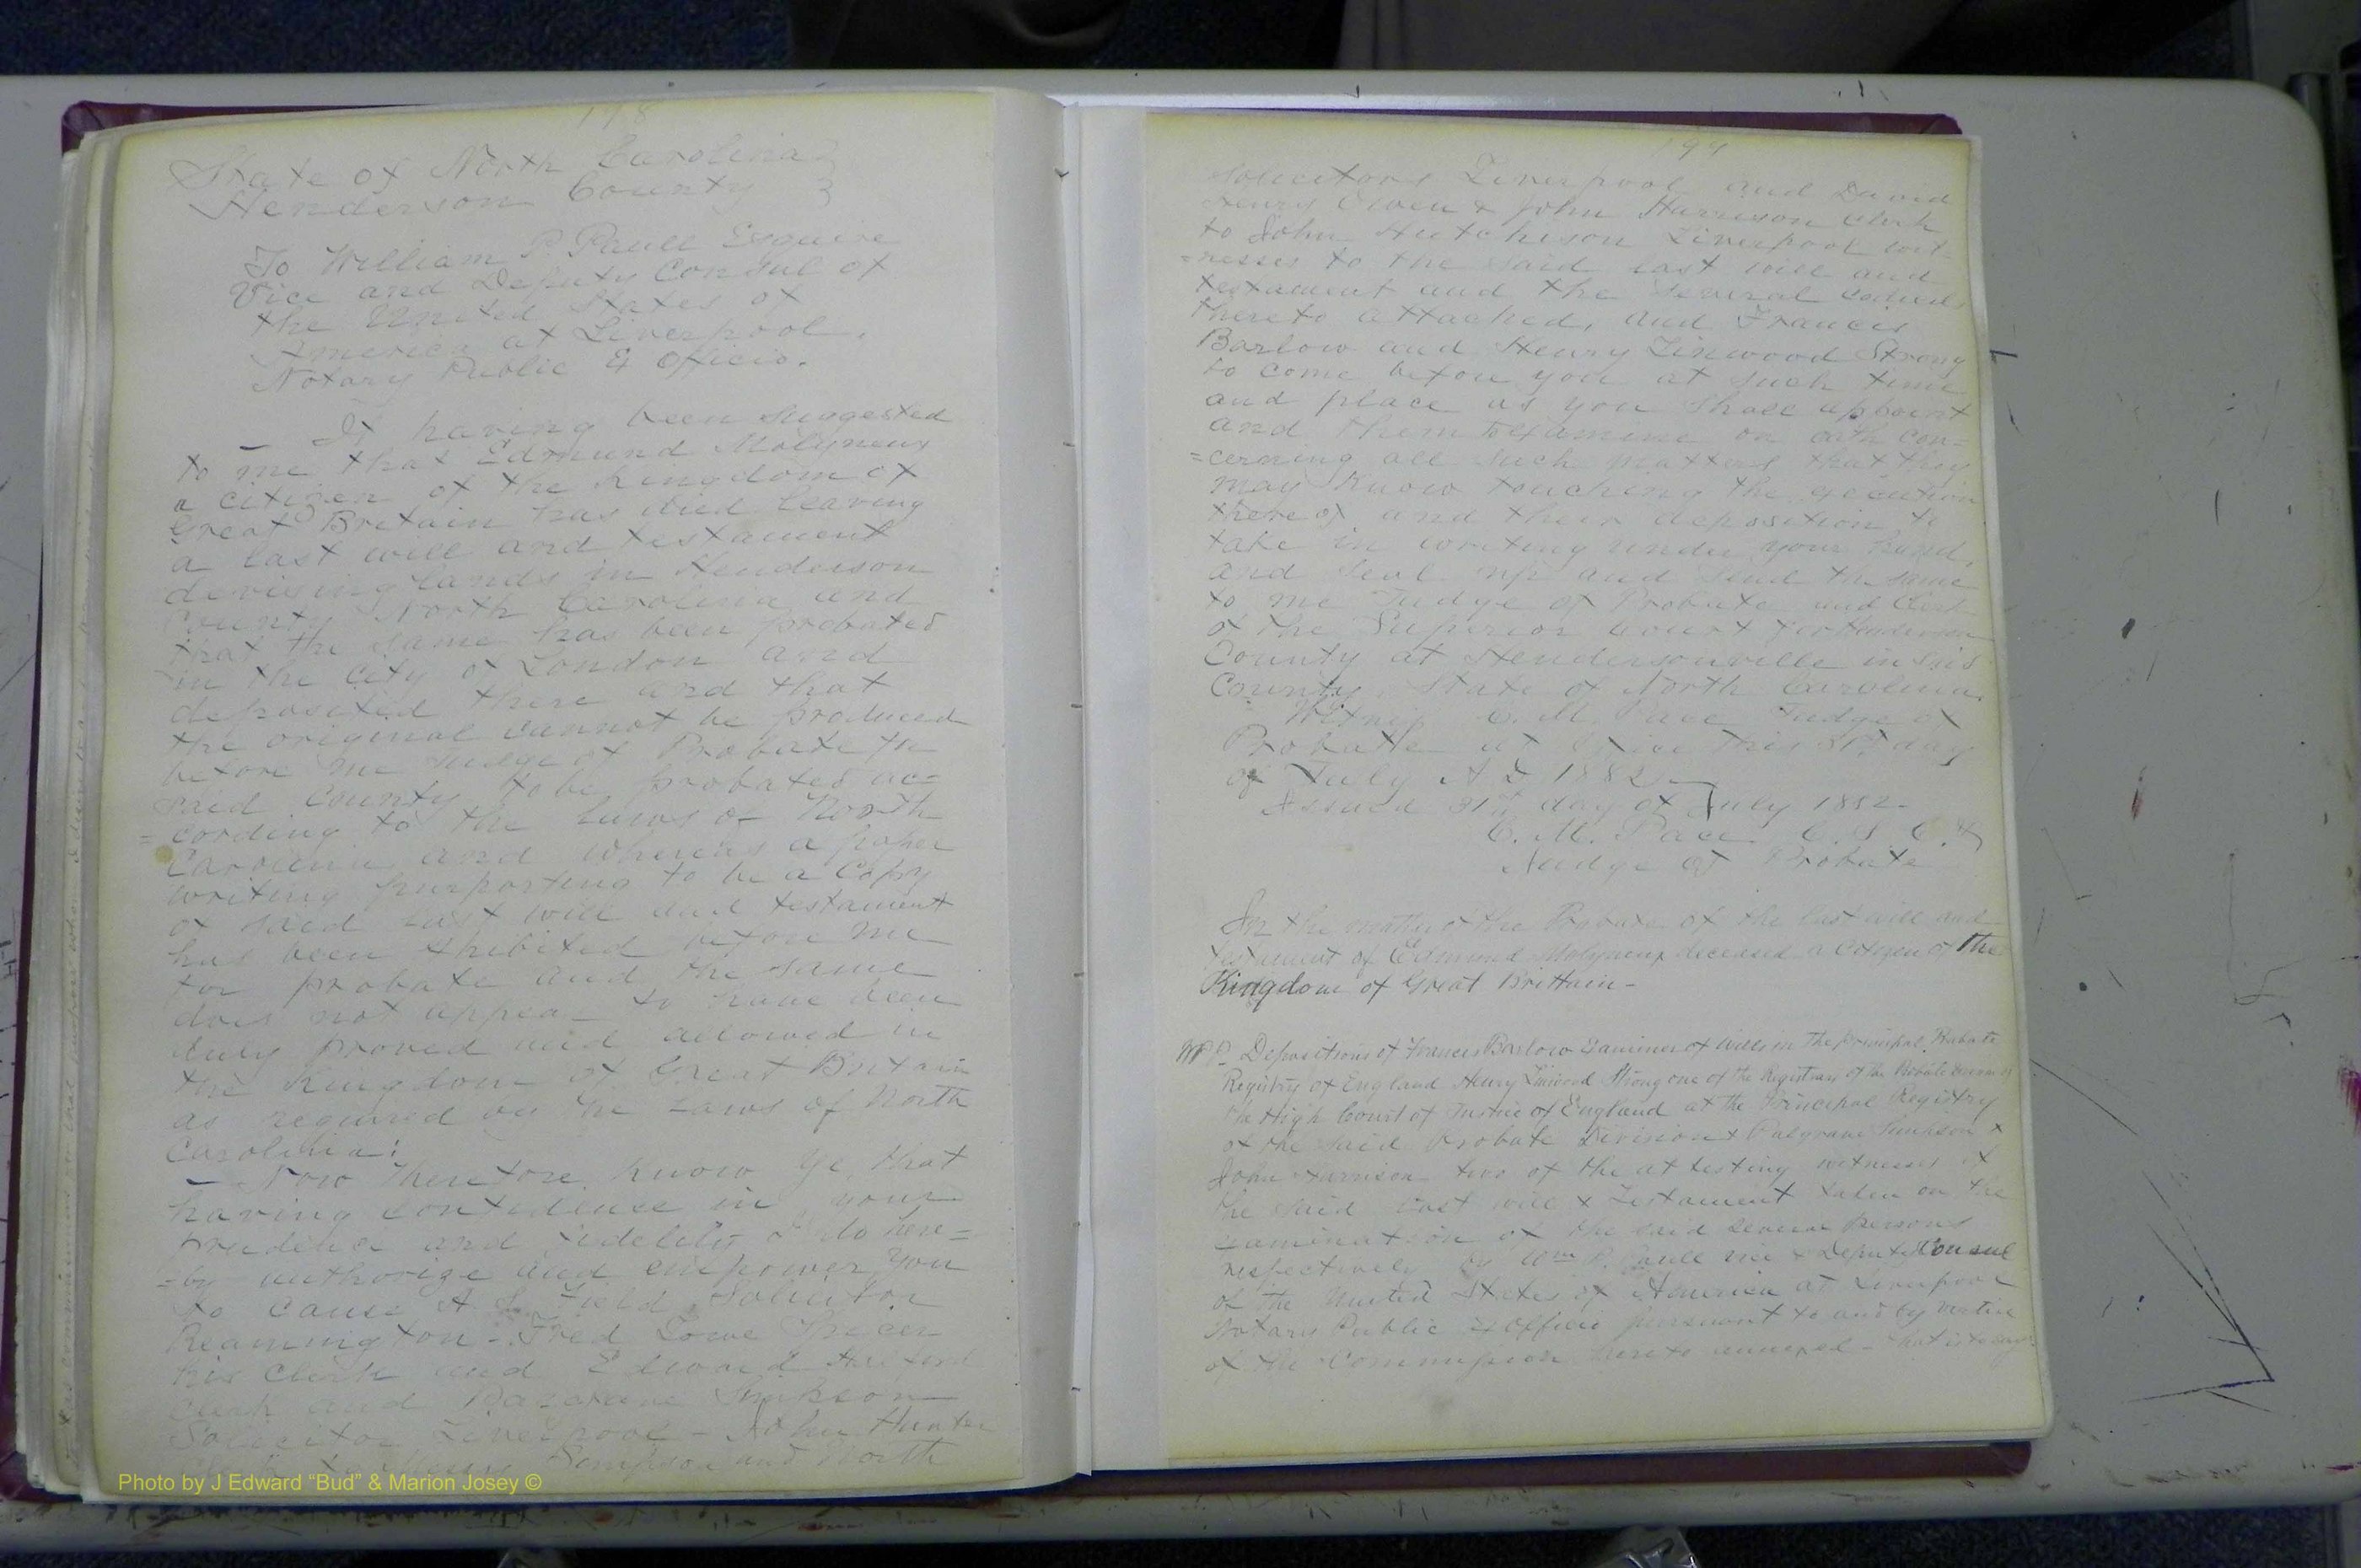 State of North Carolina
Henderson County
To William P. Paull Esquire
Vice and Deputy Consul of
the United States of
America at Liverpool.
Notary Public & Officio.
It having been suggested
to me that Edmund Molyneux
a citizen of the Kingdom of
Great Britain has died leaving
a last will and testament
devising lands in Henderson
County North Carolina and
that the same has been probated
in the City of London and
deposited there and that
the original cannot be produced
before me Judge of Probate in
said County to be probated ac=
=cording to the laws of North
Carolina and whereas a paper
writing purporting to be a Copy
of said last will and testament
has been exhibited before me
for probate and the same
does not appear to have been
duly proved and allowed in
the Kingdom of Great Britain
as required by the Laws of North
Carolina:
Now Therefore Know Ye that
having confidence in your
prudence and fidelity I do here=
=by authorize and empower you
to cause A S Field Solicitor
Leamington - Fred Lowe
his Clerk and Edward
Clerk and Simpson
Solicitor Liverpool - John Hunter
Simpson and North
Solicitors Liverpool and David
Henry Owen & John Harrison Clerk
to John Hutchison Liverpool wit-
=nesses to the said last will and
testament and the several Codicils
thereto attached, and Francis
Barlow and Henry Linwood Strong
to come before you at such time
and place as you shall appoint
and them to examine on oath con=
=cerning all such matters that they
may know touching the execution
thereof and their deposition to
take in writing under your hand,
and seal up and send the same
to me Judge of Probate and Clerk
of the Superior Court for Henderson
County at Hendersonville in
County State of North Carolina.
Witness C. M. Pace Judge of
Probate at office this 31st day
of July A D 1882
Issued 31st day of July 1882-
C. M. Pace C. S. C. &
Judge of Probate
In the matter of the Probate of the last will and
testament of Edmund Molyneux deceased a Citizen of The
Kingdom of Great Brittain-
Depositions of Francis Barlow Examiner of Wills in the principal Probate
Registry of England Henry Linwood Strong one of the Registrars of the Probate Division of
the High Court of Justice of England at the Principal Registry
of the said Probate Division & Palgrave Simpson &
John Harrison two of the attesting witnesses of
the said last will & Testament taken on the
examination of the said several persons
respectively by Wm P. Paull Vice & Deputy Consul
of the United States of America at Liverpool
Notary Public & Officio pursuant to and by virtue
of the Commission hereto annexed - that is to say
Photo by J Edward “Bud” & Marion Josey ©